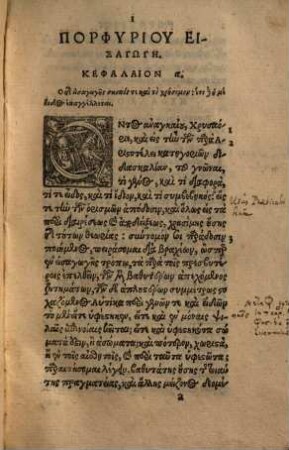 1
ΠΟΡΦΥΡΙΟΥ ΕΙ-
ΣΑΓΩΓΗ.
ΚΕΦΑΛΑΙΟΝ α.
Ὁ τῆς εἰσαγωγῆς σκοπὸς τε καὶ τὸ χρήσιμον·
ΝΤΟΣ ἀναγκαίου, Χρυσαό-
ριε, καὶ εἰς τὴν τῶν παρὰ Ἀρι-
στοτέλει κατηγοριῶν δι-
δασκαλίαν, τοῦ γνῶναι,
τί γένος, καὶ τί διαφορὰ,
τί τε εἶδος, καὶ τί ἴδιον, καὶ τί συμβεβηκός· εἴς
τε τὴν τῶν ὁρισμῶν ἀπόδοσιν, καὶ ὅλως εἰς τὰ
περὶ διαιρέσεως καὶ ἀποδείξεως, χρησίμης οὔσης
τῆς τούτων θεωρίας· σύντομόν σοι παράδοσιν
ποιούμενος, πειράσομαι διὰ βραχέων, ὥσπερ
ἐν εἰσαγωγῆς τρόπῳ, τὰ παρὰ τοῖς πρεσβυτέ-
ροις ἐπελθεῖν, τῶν μὲν βαθυτέρων ἀπεχόμενος
ζητημάτων, τῶν δ' ἁπλουστέρων συμμέτρως στο-
χαζόμενος. Αὐτίκα περὶ γενῶν τε καὶ εἰδῶν
τὸ μὲν εἴτε ὑφέστηκεν, εἴτε καὶ ἐν μόναις ψι-
λαῖς ἐπινοίαις κεῖται· εἴτε καὶ ὑφεστηκότα σώ-
ματά ἐστιν, ἢ ἀσώματα· καὶ πότερον, χωριστὰ,
ἢ ἐν τοῖς αἰσθητοῖς, καὶ περὶ ταῦτα ὑφεστῶτα·
παραιτήσομαι λέγειν. βαθυτάτης οὔσης τῆς τοιαύ-
της πραγματείας, καὶ ἄλλης μείζονος δεομέ-
a